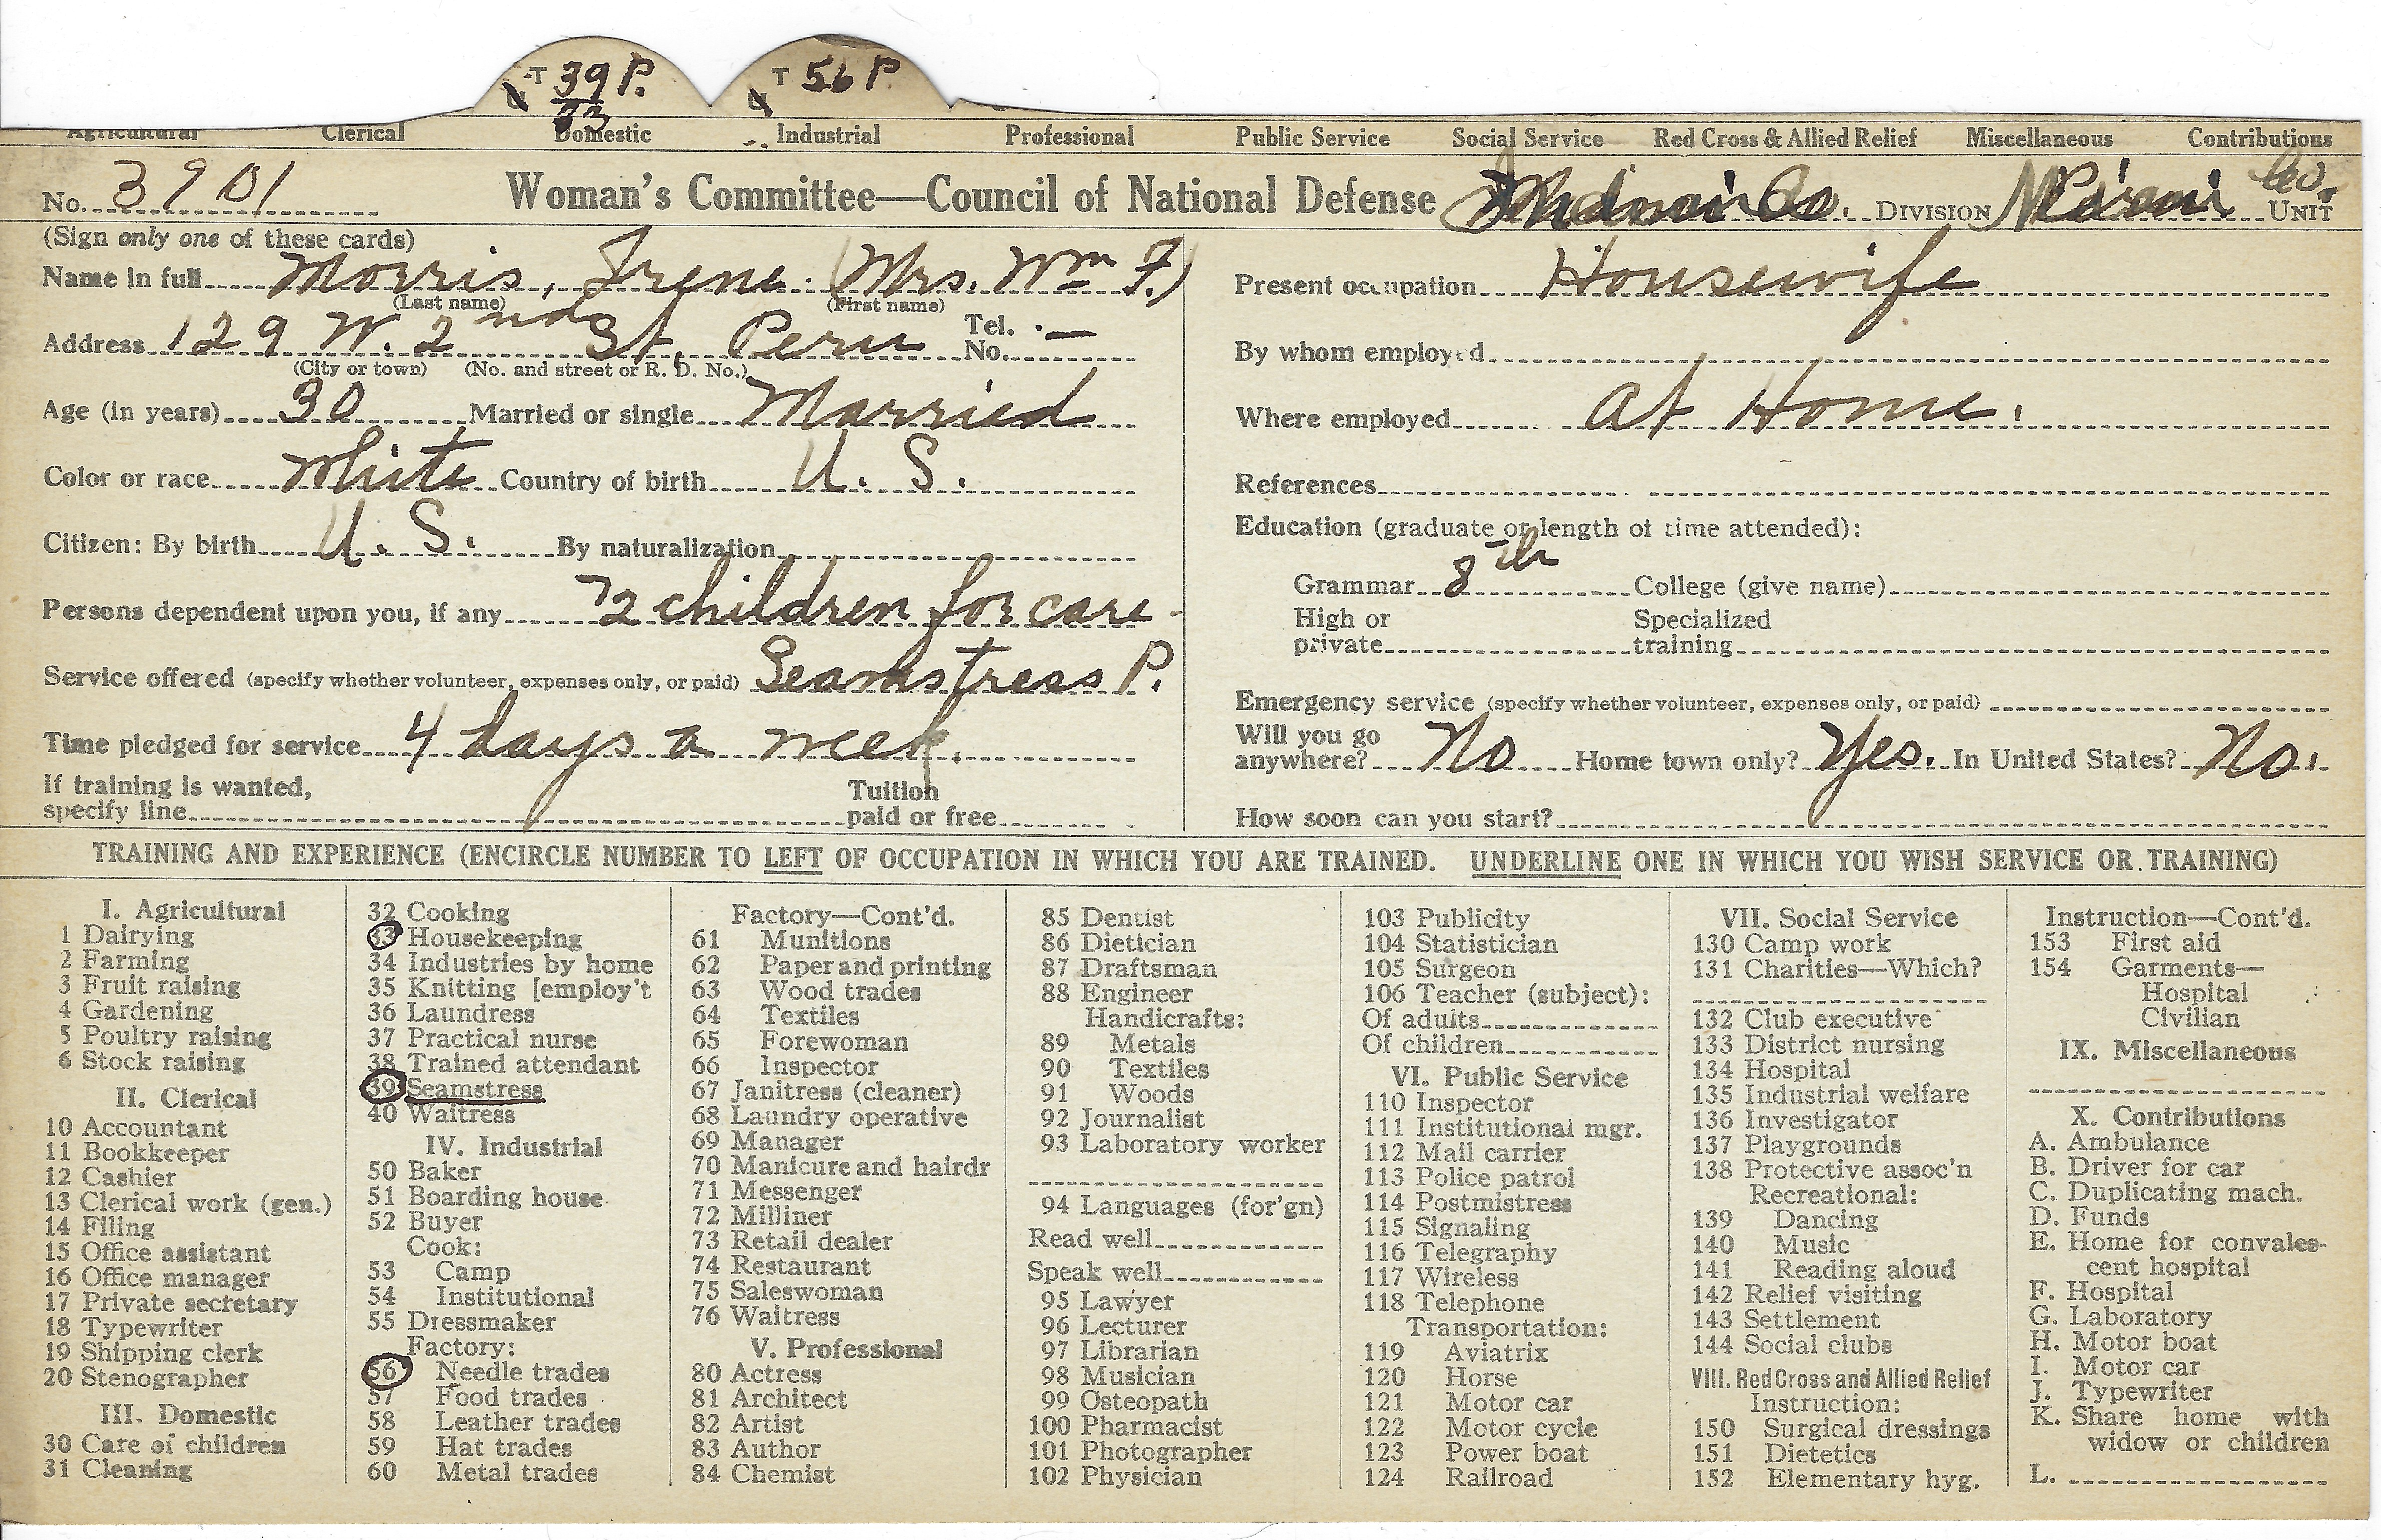 T 39 P. T 56 P
33
Agricultural Clerical Domestic Industrial Professional Public Service Social Service Red Cross & Allied Relief Miscellaneous Contributions
No. 3901 Woman's Committee—Council of National Defense Co. DIVISION Miami Co. UNIT
(Sign only one of these cards)
Name in full Morris, Irene. (Mrs. Wm F.)
(Last name) (First name)
Address 129 W. 2nd St. Peru Tel. No. —
(City or town) (No. and street or R. D. No.)
Age (in years) 30 Married or single Married
Color or race White Country of birth U. S.
Citizen: By birth U. S. By naturalization
Persons dependent upon you, if any 2 children for care
Service offered (specify whether volunteer, expenses only, or paid) Seamstress P.
Time pledged for service 4 days a week.
If training is wanted,
specify line
Tuition
paid or free
Present occupation Housewife
By whom employed
Where employed At Home.
References
Education (graduate or length of time attended):
Grammar 8th College (give name)
High or
private
Specialized
training
Emergency service (specify whether volunteer, expenses only, or paid)
Will you go
anywhere? No Home town only? Yes. In United States? No.
How soon can you start?
TRAINING AND EXPERIENCE (ENCIRCLE NUMBER TO LEFT OF OCCUPATION IN WHICH YOU ARE TRAINED. UNDERLINE ONE IN WHICH YOU WISH SERVICE OR TRAINING)
I. Agricultural
1 Dairying
2 Farming
3 Fruit raising
4 Gardening
5 Poultry raising
6 Stock raising
II. Clerical
10 Accountant
11 Bookkeeper
12 Cashier
13 Clerical work (gen.)
14 Filing
15 Office assistant
16 Office manager
17 Private secretary
18 Typewriter
19 Shipping clerk
20 Stenographer
III. Domestic
30 Care of children
31 Cleaning
32 Cooking
33 Housekeeping
34 Industries by home
35 Knitting [employ't
36 Laundress
37 Practical nurse
38 Trained attendant
39 Seamstress
40 Waitress
IV. Industrial
50 Baker
51 Boarding house
52 Buyer
Cook:
53 Camp
54 Institutional
55 Dressmaker
Factory:
56 Needle trades
57 Food trades
58 Leather trades
59 Hat trades
60 Metal trades
Factory—Cont'd.
61 Munitions
62 Paper and printing
63 Wood trades
64 Textiles
65 Forewoman
66 Inspector
67 Janitress (cleaner)
68 Laundry operative
69 Manager
70 Manicure and hairdr
71 Messenger
72 Milliner
73 Retail dealer
74 Restaurant
75 Saleswoman
76 Waitress
V. Professional
80 Actress
81 Architect
82 Artist
83 Author
84 Chemist
85 Dentist
86 Dietician
87 Draftsman
88 Engineer
Handicrafts:
89 Metals
90 Textiles
91 Woods
92 Journalist
93 Laboratory worker
94 Languages (for'gn)
Read well
Speak well
95 Lawyer
96 Lecturer
97 Librarian
98 Musician
99 Osteopath
100 Pharmacist
101 Photographer
102 Physician
103 Publicity
104 Statistician
105 Surgeon
106 Teacher (subject):
Of adults
Of children
VI. Public Service
110 Inspector
111 Institutional mgr.
112 Mail carrier
113 Police patrol
114 Postmistress
115 Signaling
116 Telegraphy
117 Wireless
118 Telephone
Transportation:
119 Aviatrix
120 Horse
121 Motor car
122 Motor cycle
123 Power boat
124 Railroad
VII. Social Service
130 Camp work
131 Charities—Which?
132 Club executive
133 District nursing
134 Hospital
135 Industrial welfare
136 Investigator
137 Playgrounds
138 Protective assoc'n
Recreational:
139 Dancing
140 Music
141 Reading aloud
142 Relief visiting
143 Settlement
144 Social clubs
VIII. Red Cross and Allied Relief
Instruction:
150 Surgical dressings
151 Dietetics
152 Elementary hyg.
Instruction—Cont'd.
153 First aid
154 Garments—
Hospital
Civilian
IX. Miscellaneous
X. Contributions
A. Ambulance
B. Driver for car
C. Duplicating mach.
D. Funds
E. Home for convales-
cent hospital
F. Hospital
G. Laboratory
H. Motor boat
I. Motor car
J. Typewriter
K. Share home with
widow or children
L.